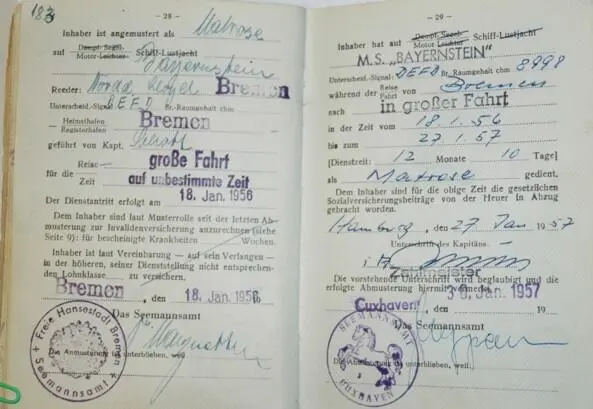 183
- 28 -
Inhaber ist angemustert als Matrose
auf Dampf- Segel- Motor-Leichter Schiff-Lustjacht
Bayernstein
Reeder: Nordd. Lloyd Bremen
Unterscheid.-Signal: DEFD Br.-Raumgehalt cbm
Heimathafen
Registerhafen Bremen
geführt von Kapt.
für die Reise Zeit große Fahrt
auf unbestimmte Zeit
Der Dienstantritt erfolgt am 18. Jan. 1956
Dem Inhaber sind laut Musterrolle seit der letzten Ab-
musterung zur Invalidenversicherung anzurechnen (siehe
Seite 9): für bescheinigte Krankheiten Wochen.
Inhaber ist laut Vereinbarung — auf sein Verlangen —
in der höheren, seiner Dienststellung nicht entsprechen-
den Lohnklasse zu versichern.
Bremen, den 18. Jan. 1956
Das Seemannsamt
Die Anmusterung ist unterblieben, weil
Freie Hansestadt Bremen
Seemannsamt
- 29 -
Inhaber hat auf Dampf- Segel- Motor-Leichter Schiff-Lustjacht
M.S. „BAYERNSTEIN"
Unterscheid.-Signal: DEFD Br. Raumgehalt cbm 8998
während der Reise Fahrt von Bremen
nach in großer Fahrt
in der Zeit vom 18.1.56
bis zum 27.1.57
[Dienstzeit: 12 Monate 10 Tage]
als Matrose gedient.
Dem Inhaber sind für die obige Zeit die gesetzlichen
Sozialversicherungsbeiträge von der Heuer in Abzug
gebracht worden.
Hamburg, den 27 Jan 1957
Unterschrift des Kapitäns
Zahlmeister
Die vorstehende Unterschrift wird beglaubigt und die
erfolgte Abmusterung hiermit
Cuxhaven, Jan. 1957
19
Das Seemannsamt
Die Abmusterung ist unterblieben, weil
SEEMANNSAMT
CUXHAVEN